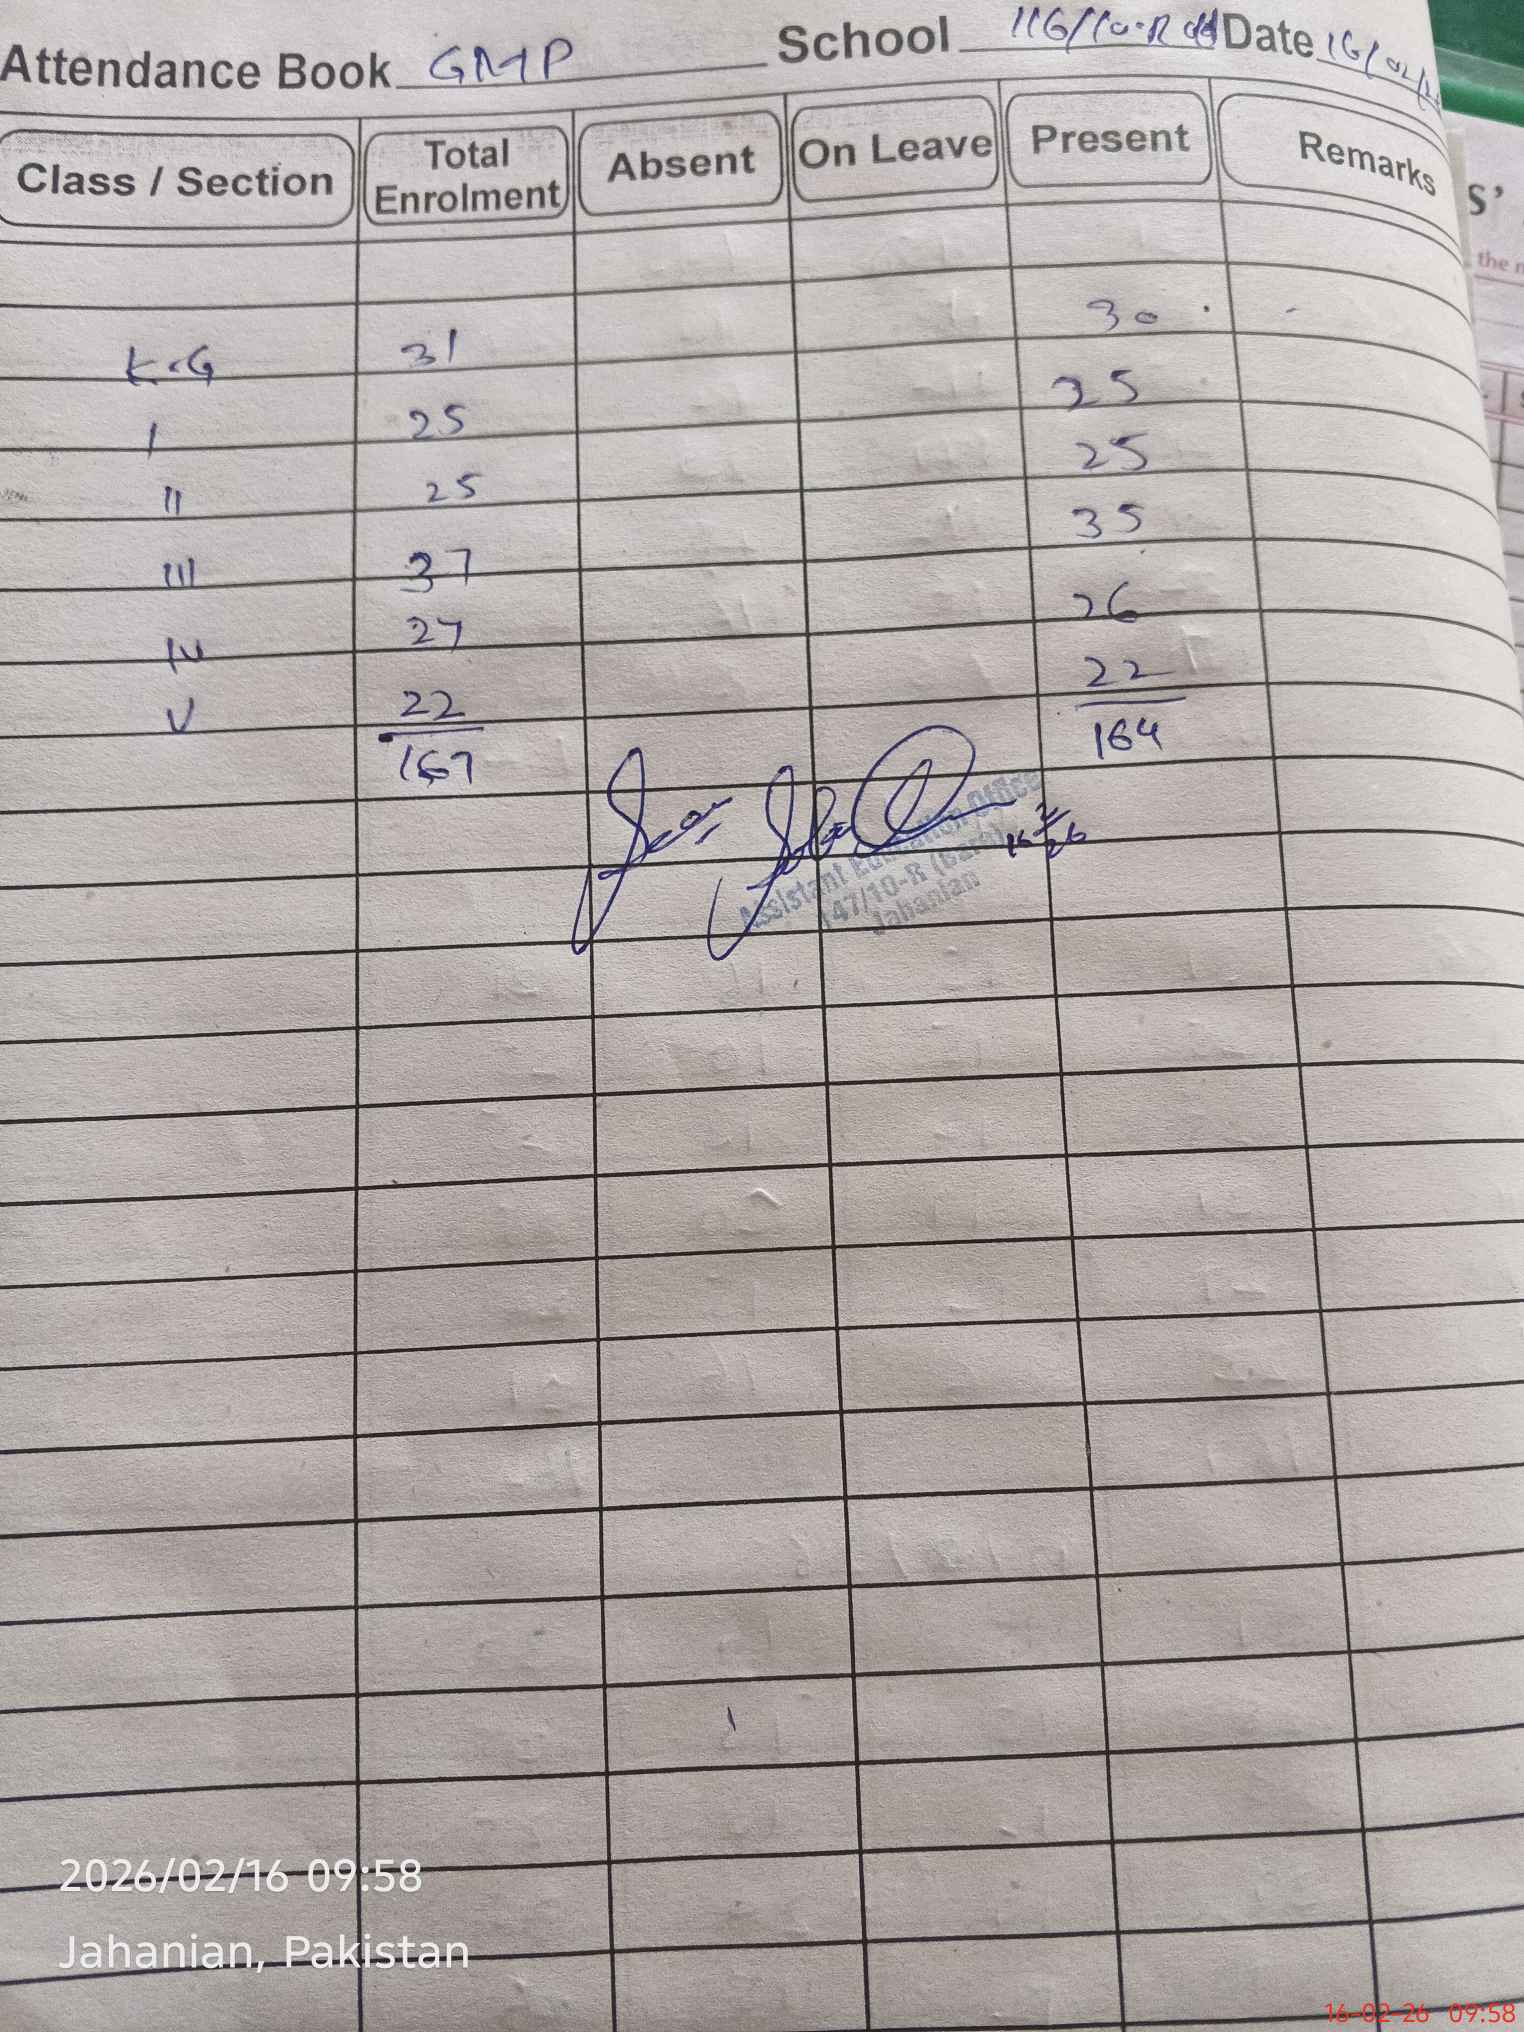 Attendance Book GMP School 116/10-R Date 16/02/
Class / Section Total Enrolment Absent On Leave Present Remarks
K.G 31 30 -
I 25 25
II 25 25
III 37 35
IV 27 26
V 22 22
167 164
16/2/26
Assistant Education Office
147/10-R
Jahanian
S'
the
2026/02/16 09:58
Jahanian, Pakistan
16-02-26 09:58